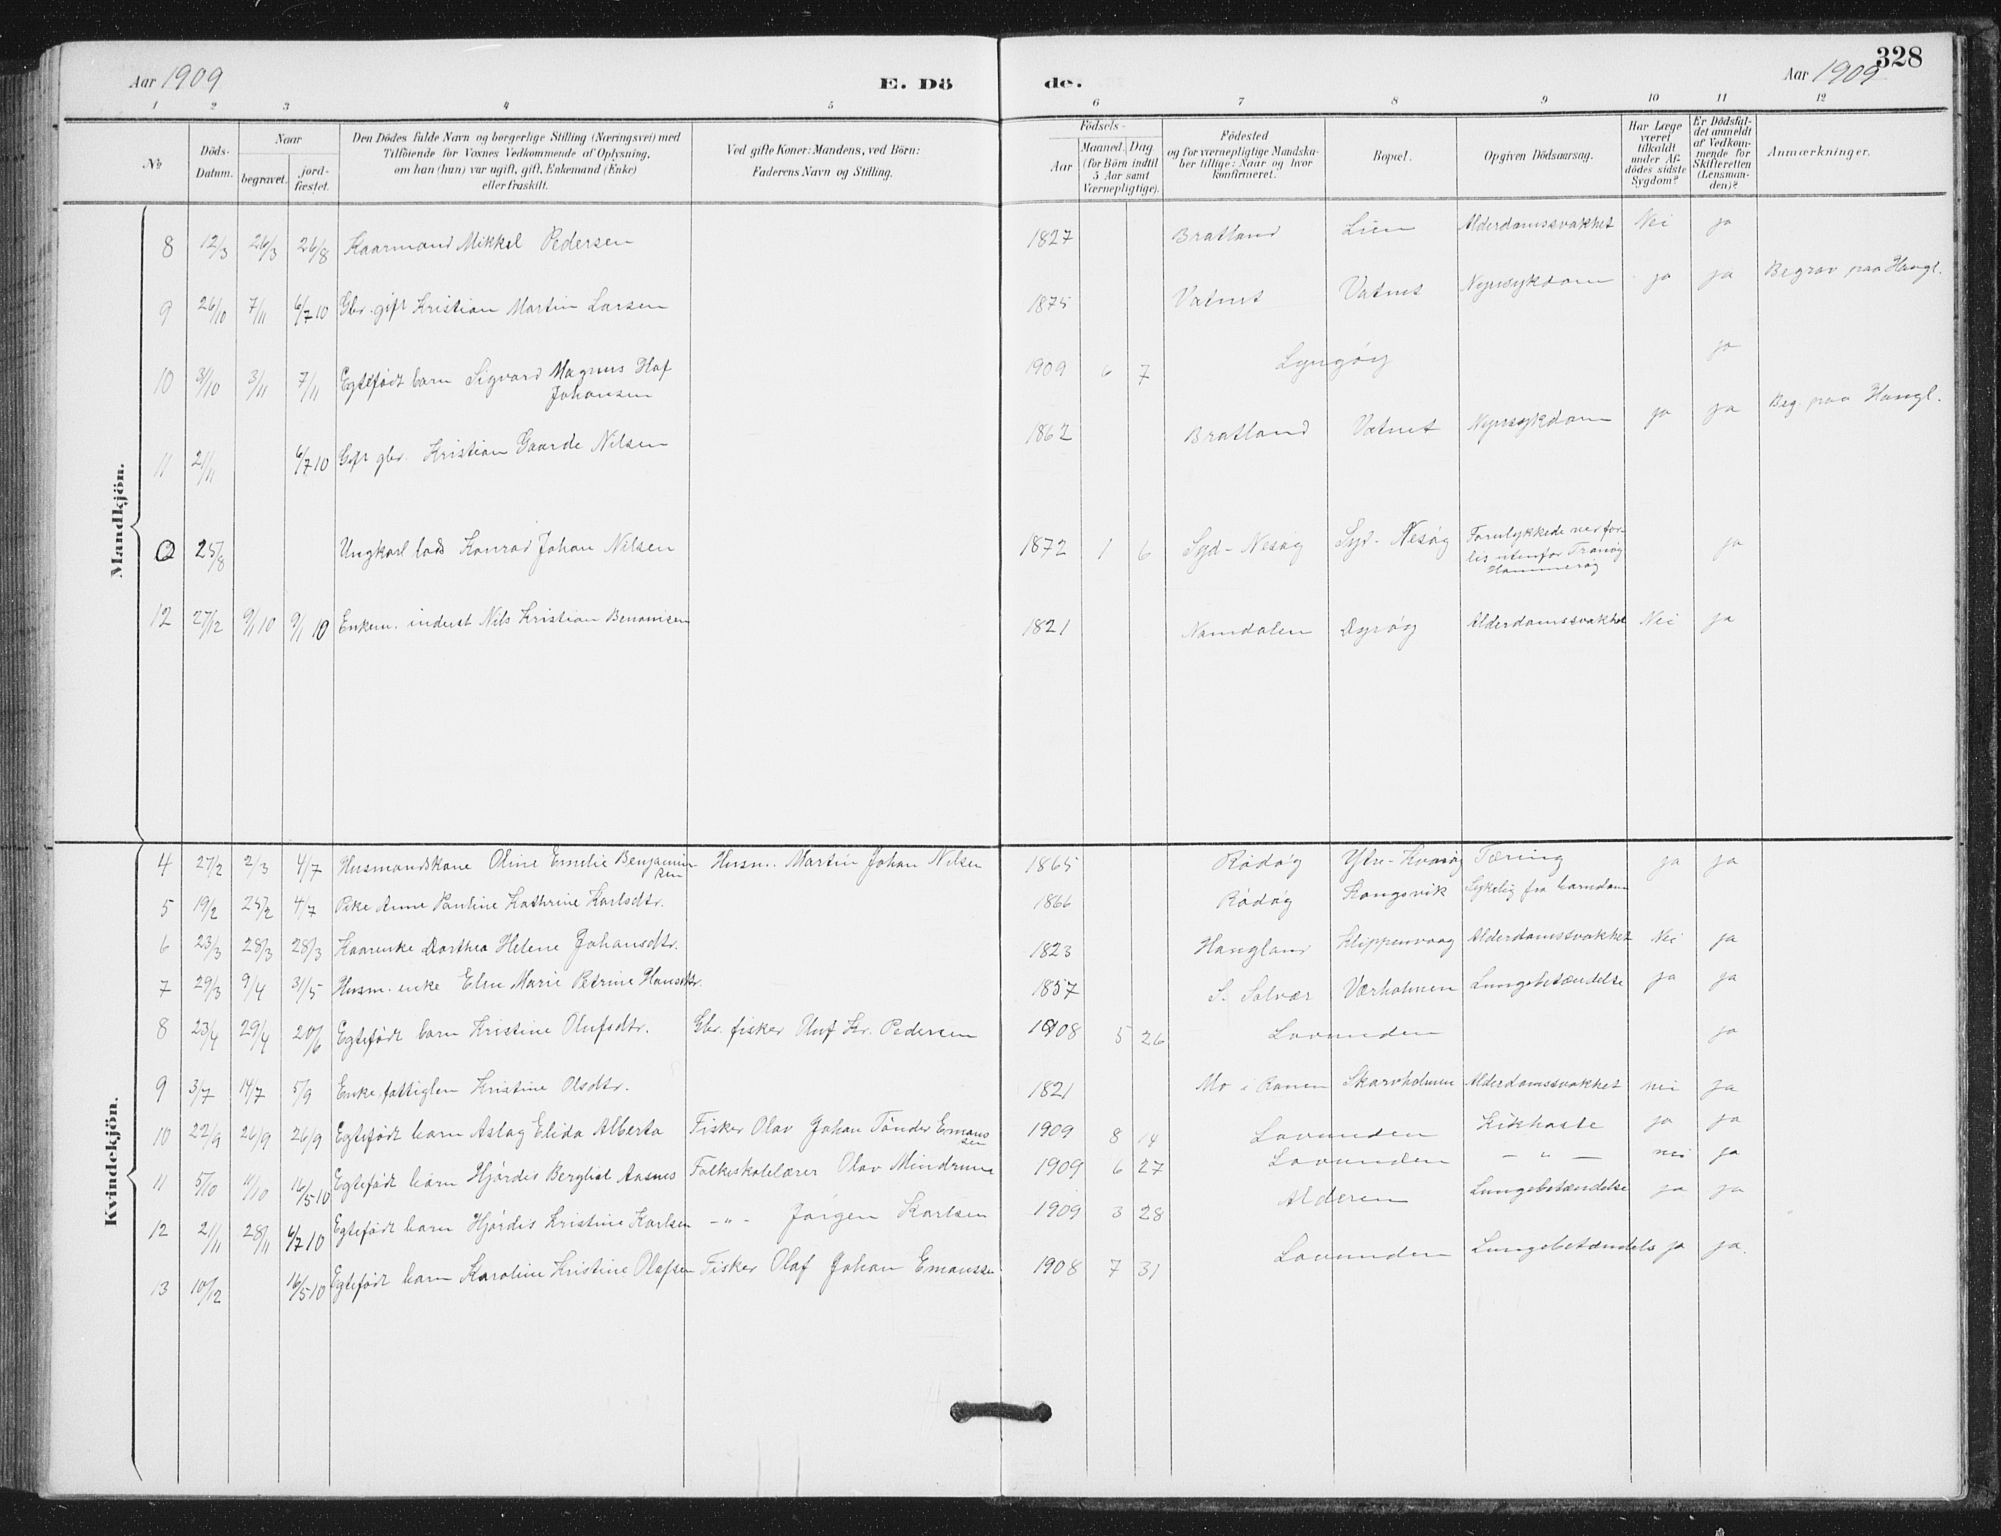 Aar 1909
E. Dö
de.
Aar 1909
328
1 2 3 4 5 6 7 8 9 10 11 12
No
Döds-Datum.
Naar
begravet.
jord-fæstet.
Den Dödes fulde Navn og borgerlige Stilling (Næringsvei) med
Tilföiende for Voxnes Vedkommende af Oplysning,
om han (hun) var ugift, gift, Enkemand (Enke)
eller fraskilt.
Ved gifte Koner: Mandens, ved Börn:
Faderens Navn og Stilling.
Födsels-
Aar
Maaned. Dag
(for Börn indtil
5 Aar samt
Værnepligtige).
Födested
og for værnepligtige Mandska-
ber tillige: Naar og hvor
konfirmeret.
Bopæl.
Opgiven Dödsaarsag.
Har Læge
været
tilkaldt
under Af-
dödes sidste
Sygdom?
Er Dödsfal-
det anmeldt
af Vedkom-
mende for
Skifteretten
(Lensman-
den)?
Anmærkninger.
Mandkjön.
8 12/3 26/3 26/8 Kaarmand Mikkel Pedersen 1827 Bratland Lien Alderdomssvakhet Nei ja
9 26/10 7/11 6/7 10 Gbr. gift Kristian Martin Larsen 1875 Vatnet Vatnet Nyresykdom ja ja Begrav paa Hangl.
10 3/10 3/11 7/11 Egtefödt barn Sigvard Magnus Haf
Johansen 1909 6 7 Lyngöy ja
11 21/11 6/7 10 Gift gbr. Kristian Gaarde Nilsen 1862 Bratland Vatnet Nyresykdom ja ja Beg. paa Hangl.
25/8 Ungkarl lods Konrad Johan Nilsen 1872 1 6 Syd-Nesøy Syd-Nesøy Forulykkede ved for-
lis utenfor Tranøy
Hammerøy ja
12 27/12 9/1 10 9/1 10 Enkem. inderst Nils Kristian Benonisen 1821 Namdalen Dyrøy Alderdomssvakhet Nei ja
Kvindekjön.
4 27/2 2/3 4/7 Husmandskone Oline Emelie Benjamin
sen Husm. Martin Johan Nilsen 1865 Rödöy Ytre-Kvaröy Tæring ja ja
5 19/2 25/2 4/7 Pike Anne Pauline Kathrine Karlsdtr. 1866 Rödöy Kongsvik Sykelig fra barndom
6 23/3 28/3 28/3 Kaarenke Dorthea Helene Johansdtr. 1823 Hangland Klippenvaag Alderdomssvakhet Nei ja
7 29/3 9/4 31/5 Husm. enke Elen Marie Petrine Hansdtr. 1857 S. Solvær Værholmen Lungebetændelse ja ja
8 23/4 29/4 20/6 Egtefödt barn Kristine Olufsdtr. Gbr. fisker Oluf Kr. Pedersen 1908 5 26 Lovunden ja
9 3/7 14/7 5/9 Enke, fattiglem Kristine Olsdtr. 1821 Mo i Ranen Skarvholmen Alderdomssvakhet nei ja
10 22/9 26/9 26/9 Egtefödt barn Aslag Elida Alberta Fisker Olav Johan Tønder Emans
sen 1909 8 14 Lovunden Kikhoste ja ja
11 5/10 11/10 16/5 10 Egtefödt barn Hjördis Bergliot Aasnes Folkeskolelærer Olav Mindrum 1909 6 27 Lovunden — " — nei ja
12 2/11 28/11 6/7 10 Egtefödt barn Hjördis Kristine Karlsen — " — Jörgen Karlsen 1909 3 28 Alderen Lungebetændelse ja ja
13 10/12 16/5 10 Egtefödt barn Karoline Kristine Olafsen Fisker Olaf Johan Emanssen 1908 7 31 Lovunden Lungebetændelse ja ja.